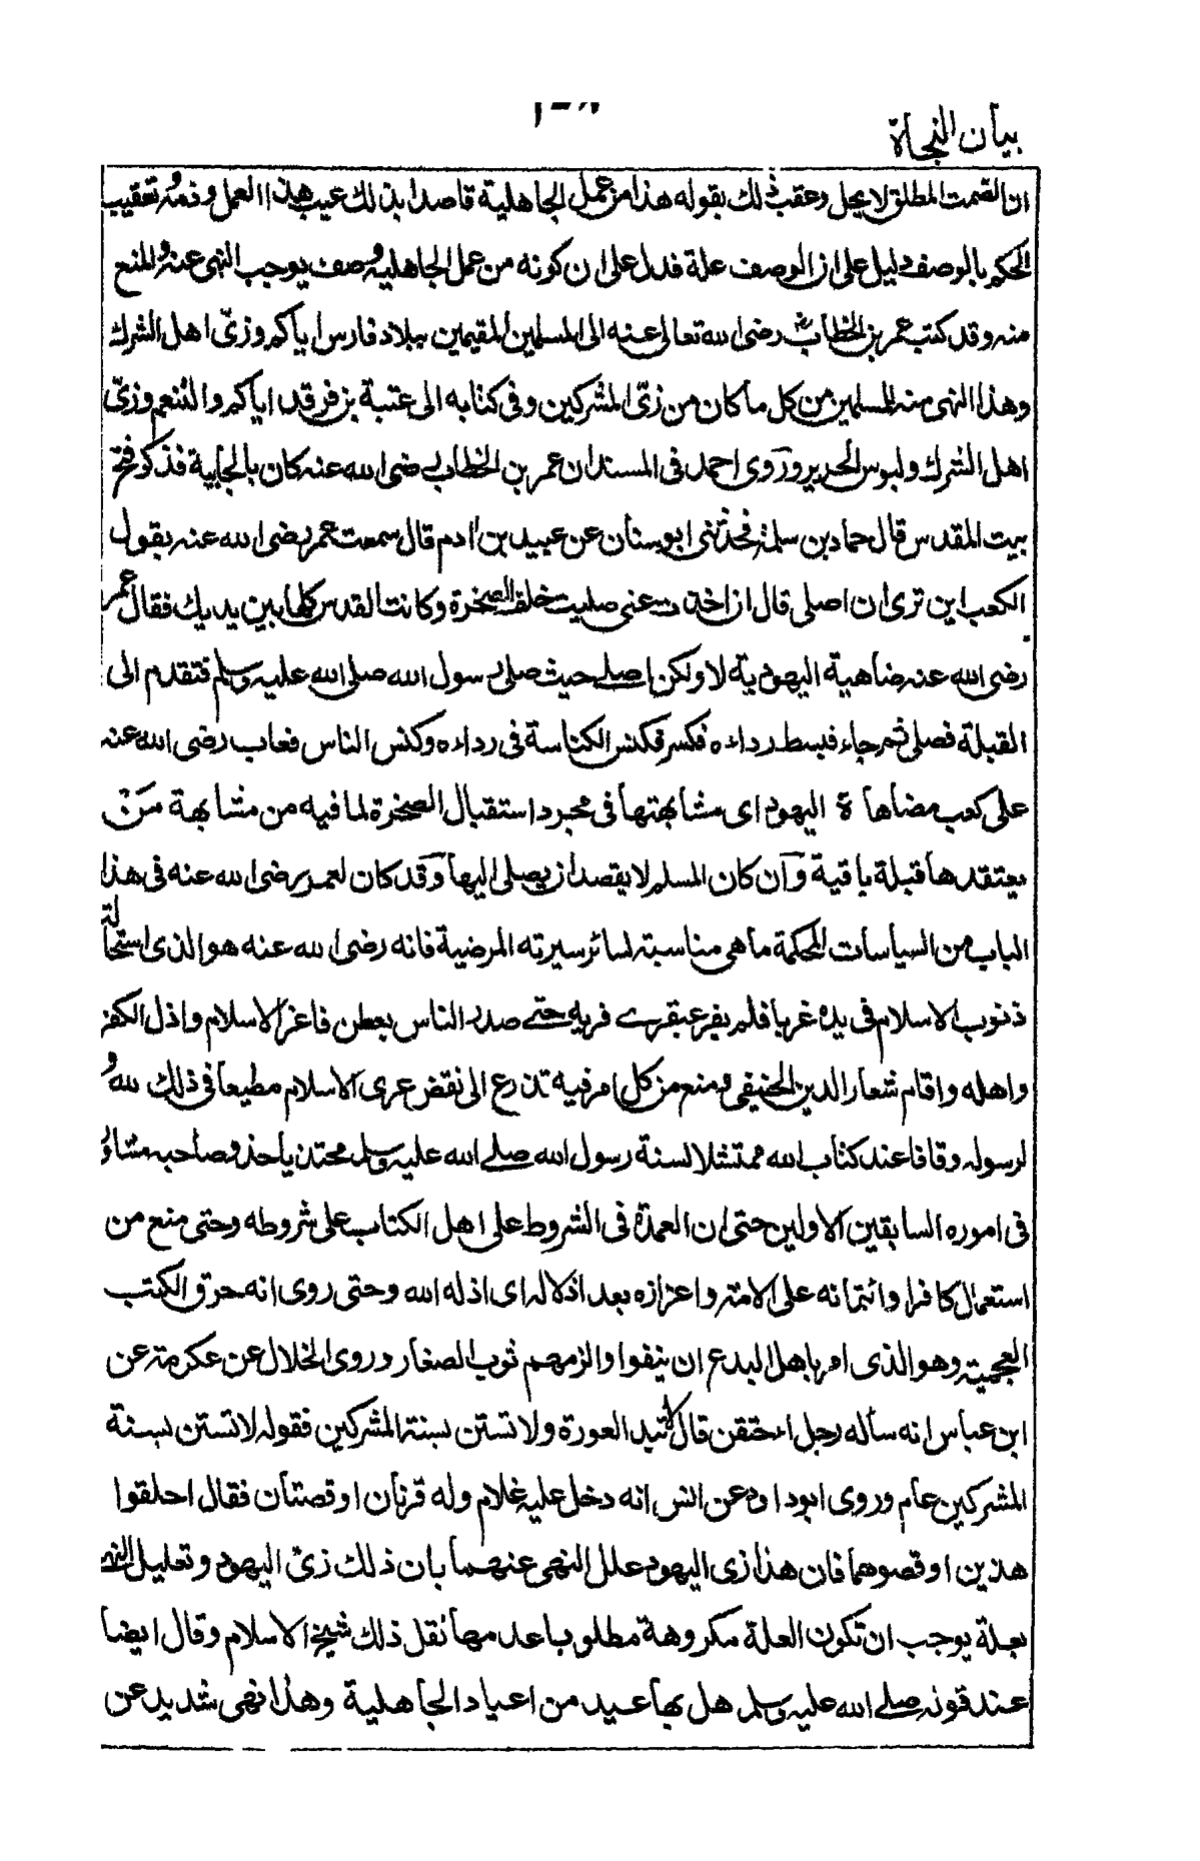 بيان النجاة
ان الصمت المطلق لا يحل وعقب ذلك بقوله هذا من عمل الجاهلية قاصدا بذلك عيب هذا العمل وذمه وتعقيب
الحكم بالوصف دليل على ان الوصف علة فدل على ان كونه من عمل الجاهلية وصف يوجب النهى عنه والمنع
منه وقد كتب عمر بن الخطاب رضى الله تعالى عنه الى المسلمين المقيمين ببلاد فارس اياكم وزىّ اهل الشرك
وهذا النهى منه للمسلمين من كل ما كان من زىّ المشركين وفى كتابه الى عتبة بن فرقد اياكم والتنعم وزىّ
اهل الشرك ولبوس الحرير وروى احمد فى المسند ان عمر بن الخطاب رضى الله عنه كان بالجابية فذكر فتح
بيت المقدس قال حماد بن سلمة فحدثنى ابو سنان عن عبيد بن ادم قال سمعت عمر رضى الله عنه يقول
الكعب اين ترى ان اصلى قال ان اخذت عنى صليت خلف الصخرة وكانت القدس كلها بين يديك فقال عمر
رضى الله عنه ضاهية اليهودية لا ولكن اصلے حيث صلى رسول الله صلى الله عليه وسلم فتقدم الى
القبلة فصلى ثم جاء فبسط رداءه فكنس الكناسة فى رداءه وكنس الناس فعاب رضى الله عنه
على كعب مضاهاة اليهود اى مشابهتها فى مجرد استقبال الصخرة لما فيه من مشابهة من
يعتقدها قبلة باقية وان كان المسلم لا يقصد ان يصلى اليها وقد كان لعمر رضى الله عنه فى هذا
الباب من السياسات المحكمة ما هى مناسبة لسائر سيرته المرضية فانه رضى الله عنه هو الذى استحالت
ذنوب الاسلام فى يده غربا فلم يفر عبقرے فريه حتے صدر الناس بعطن فاعز الاسلام واذل الكفر
واهله واقام شعار الدين الحنيفى ومنع من كل امر فيه تذرع الى نقض عرى الاسلام مطيعا فى ذلك لله و
لرسوله وقافا عند كتاب الله ممتثلا لسنة رسول الله صلے الله عليه وسلم محتذيا حذو صاحبه مشاورا
فى اموره السابقين الاولين حتى ان العمدة فى الشروط على اهل الكتاب على شروطه وحتى منع من
استعمال كافر او ائتمانه على الامة واعزازه بعد اذلاله اى اذله الله وحتى روى انه حرق الكتب
العجمية وهو الذى امر باهل البدع ان ينفوا والزمهم ثوب الصغار وروى الخلال عن عكرمة عن
ابن عباس انه سأله رجل احتقن قال لا تبد العورة ولا تستن بسنة المشركين فقوله لا تستن بسنة
المشركين عام وروى ابو داود عن انس انه دخل عليه غلام وله قرنان او قصتان فقال احلقوا
هذين او قصوهما فان هذا زى اليهود علل النهى عنهما بان ذلك زىّ اليهود وتعليل النهى
بعلة يوجب ان تكون العلة مكروهة مطلوب اعدامها نقل ذلك شيخ الاسلام وقال ايضا
عند قوله صلے الله عليه وسلم هل بها عيد من اعياد الجاهلية وهذا نهى شديد عن